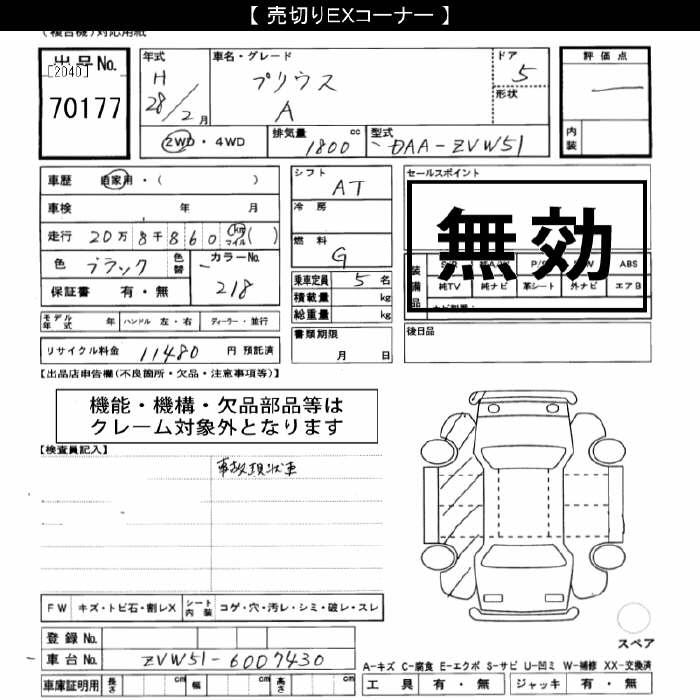 【 売切りEXコーナー 】
(複合機)対応用紙
出品No.
[2040]
70177
年式
H
28/2月
車名・グレード
プリウス
A
ドア
5
形状
評価点
内装
2WD・4WD
排気量 1800 cc
型式 DAA-ZVW51
車歴 自家用・( )
車検 年 月
走行 20万8千860 km マイル ( )
色 ブラック 色替
カラーNo. 218
保証書 有・無
モデル年式 年 ハンドル 左・右 ディーラー・並行
リサイクル料金 11480 円 預託済
シフト AT
冷房
燃料 G
乗車定員 5 名
積載量 kg
総重量 kg
書類期限
月 日
セールスポイント
無効
装備品
ABS
純TV 純ナビ 革シート 外ナビ エアB
後日品
【出品店申告欄(不良箇所・欠品・注意事項等)】
機能・機構・欠品部品等は
クレーム対象外となります
【検査員記入】
事故現状車
FW キズ・トビ石・割レX シート内装 コゲ・穴・汚レ・シミ・破レ・スレ
登録No.
車台No. ZVW51-6007430
車庫証明用 長さ cm 幅 cm 高さ cm
スペア
A-キズ C-腐食 E-エクボ S-サビ U-凹ミ W-補修 XX-交換済
工具 有・無 ジャッキ 有・無